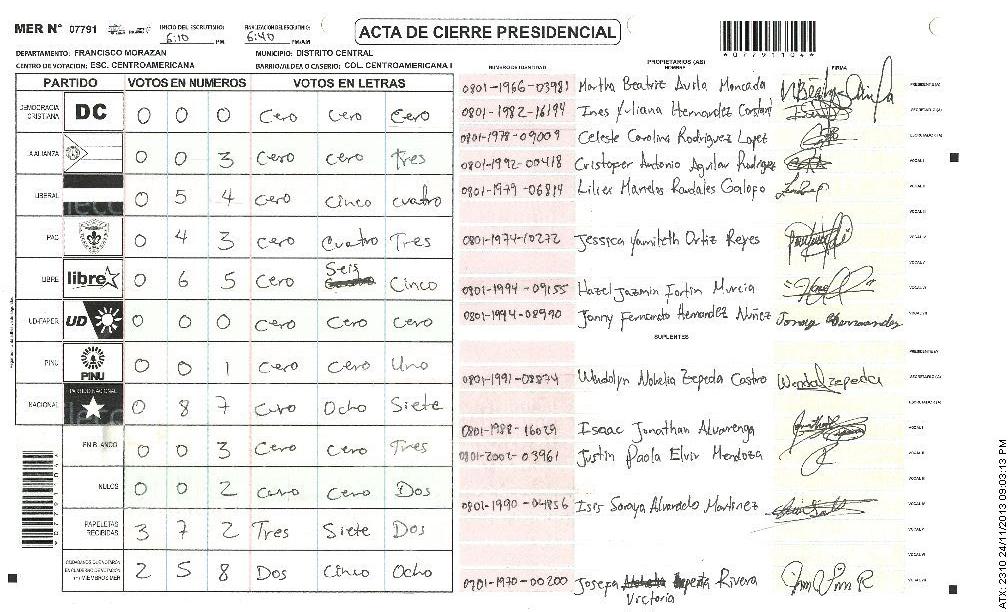 MER Nº 07791
INICIO DEL ESCRUTINIO:
6:10 PM
FINALIZACION DEL ESCRUTINIO:
6:40 PM/AM
ACTA DE CIERRE PRESIDENCIAL
*077911044*
DEPARTAMENTO: FRANCISCO MORAZAN
MUNICIPIO: DISTRITO CENTRAL
CENTRO DE VOTACION: ESC. CENTROAMERICANA
BARRIO/ALDEA O CASERIO: COL. CENTROAMERICANA I
PARTIDO VOTOS EN NUMEROS VOTOS EN LETRAS
DEMOCRACIA CRISTIANA DC 0 0 0 Cero Cero Cero
LA ALIANZA 0 0 3 Cero Cero Tres
LIBERAL 0 5 4 Cero Cinco Cuatro
PAC 0 4 3 Cero Cuatro Tres
LIBRE libre 0 6 5 Cero Seis Cinco
UD-FAPER UD 0 0 0 Cero Cero Cero
PINU PINU 0 0 1 Cero Cero Uno
NACIONAL PARTIDO NACIONAL 0 8 7 Cero Ocho Siete
EN BLANCO 0 0 3 Cero Cero Tres
NULOS 0 0 2 Cero Cero Dos
PAPELETAS RECIBIDAS 3 7 2 Tres Siete Dos
2 5 8 Dos Cinco Ocho
NUMERO DE IDENTIDAD
PROPIETARIOS (AS)
NOMBRE
FIRMA
0801-1966-03981 Martha Beatriz Avila Moncada PRESIDENTE(A)
0801-1982-16194 Ines Yuliana Hernandez SECRETARIO(A)
0801-1978-09009 Celeste Carolina Rodriguez Lopez ESCRUTADOR(A)
0801-1992-00418 Cristoper Antonio Aguilar Rodriguez VOCAL I
0801-1979-06814 VOCAL II
VOCAL III
0801-1974-10272 Jessica Yamileth Ortiz Reyes VOCAL IV
VOCAL V
0801-1994-09155 Hazel Jazmin Fortin Murcia VOCAL VI
0801-1994-08990 Jonny Fernando Hernandez Nuñez VOCAL VII
SUPLENTES
PRESIDENTE(A)
0801-1991-08874 Wendolyn Nohelia Zepeda Castro SECRETARIO(A)
ESCRUTADOR(A)
0801-1988-16029 Isaac Jonathan Alvarenga VOCAL I
0801-2002-03961 Justin Paola Elvir Mendoza VOCAL II
VOCAL III
0801-1990-04856 Isis Soraya Alvarado Martinez VOCAL IV
VOCAL V
VOCAL VI
0701-1970-00200 Josefa Rivera VOCAL VII
Victoria
ATX: 2310 24/11/2013 09:03:13 PM